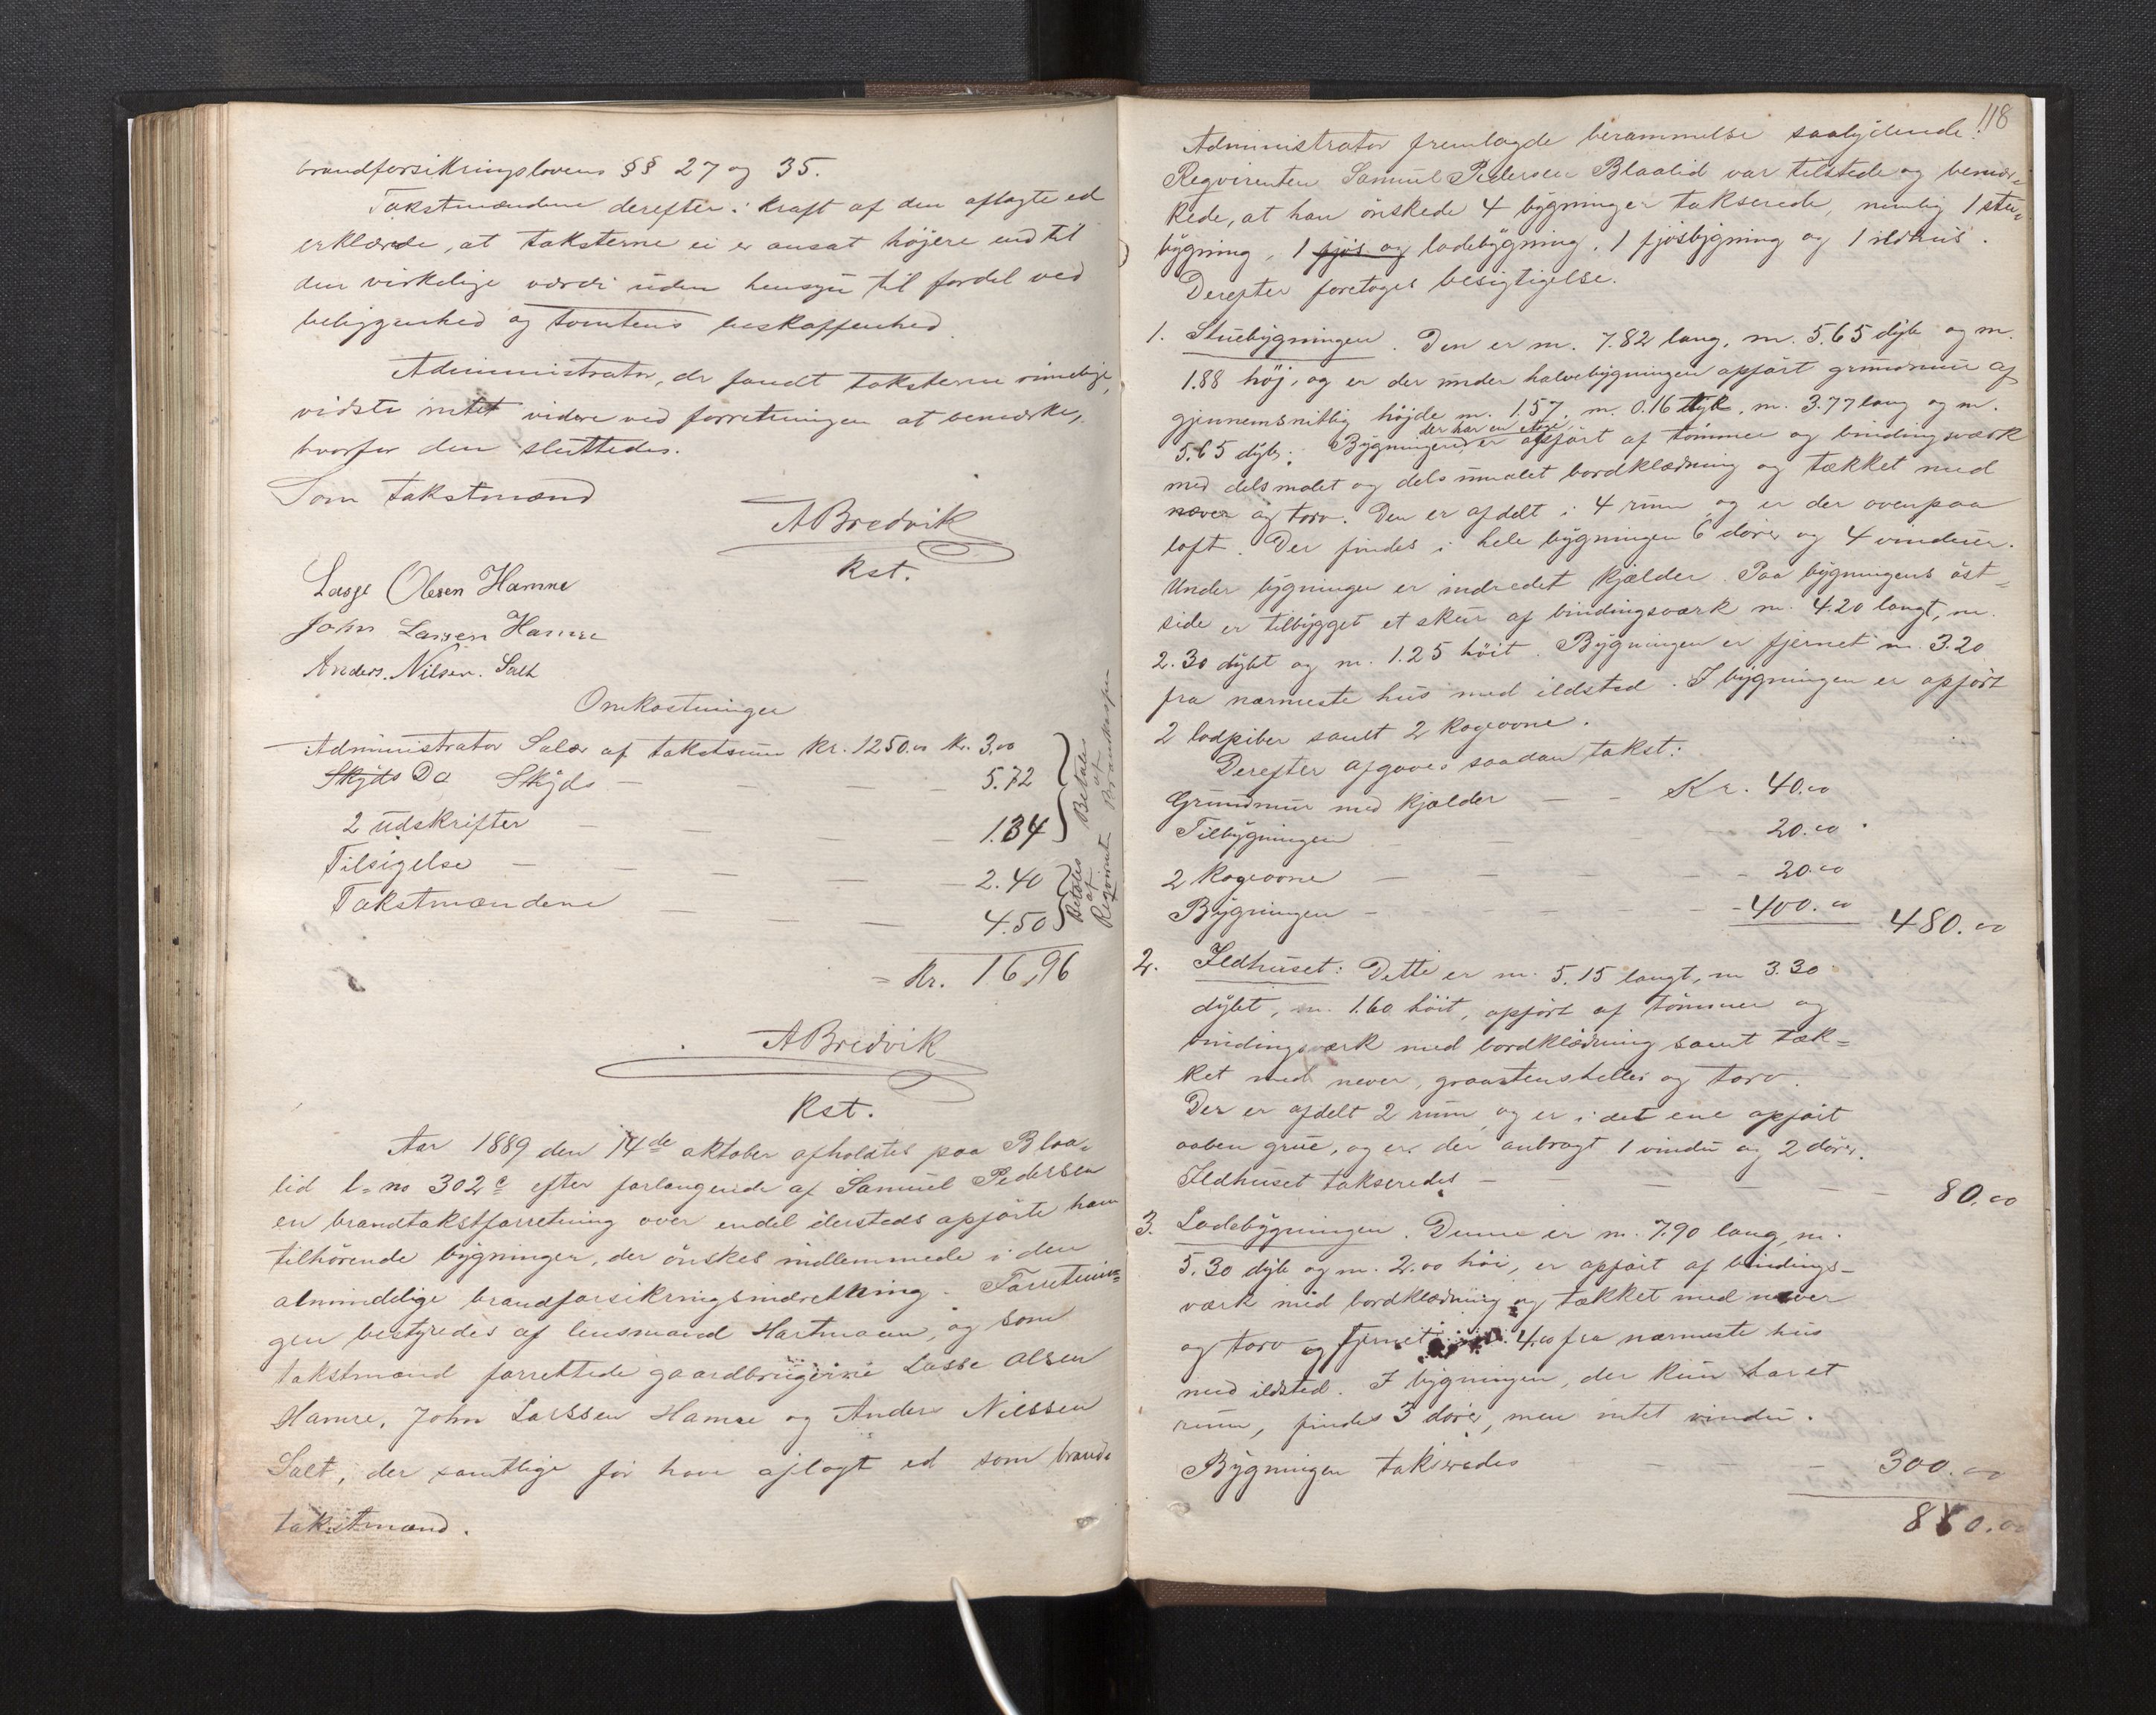 brandforsikringslovens §§ 27 og 35.
Takstmændene derefter i kraft af den aflagte ed
erklærede, at taksterne ei er ansat højere end til
den virkelige værdi uden hensyn til fordel ved
beliggenhed og tomtens beskaffenhed.
Administrator, der fandt taksterne rimelige,
vidste intet videre ved forretningen at bemærke,
hvorfor den sluttedes.
Som takstmænd
A Bredvik
Kst.
Lasse Olesen Hamre
John Larsen Hamre
Anders. Nilsen. Salt
Omkostninger
Administrator Salær af takstsum Kr. 1250.00 Kr. 3.00
Skyds Do Skyds — — — — 5.72
2 udskrifter — — — — 1.34
Betales af Brandkassen
Tilsigelse — — — — 2.40
Takstmændene — — — 4.50
Betales af Reqvirent
= Kr. 16,96
A Bredvik
Kst.
Aar 1889 den 14de oktober afholdtes paa Blaa-
lid l= no 302c efter forlangende af Samuel Pedersen
en brandtakstforretning over endel dersteds opførte ham
tilhørende bygninger, der ønskes indlemmede i den
almindelige brandforsikringsindretning. Forretnin=
gen bestyredes af lensmand Hartmann, og som
takstmænd forrettede gaardbrugerne Lasse Olsen
Hamre, John Larssen Hamre og Anders Nilssen
Salt, der samtlige før have aflagt ed som brand-
takstmænd.
118
Administrator fremlagde berammelse saalydende:
Reqvirenten Samuel Pedersen Blaalid var tilstede og bemær-
kede, at han ønskede 4 bygninger takserede, nemlig 1 stu=
bygning, 1 fjøs og ladebygning, 1 fjøsbygning og 1 ildhus.
Derefter foretoges besigtigelse.
1. Stuebygningen. Den er m. 7.82 lang, m. 5.65 dyb og m.
1.88 høj, og er der under halvebygningen opført grundmur af
gjennemsnitlig højde m. 1.57, m. 0.16 tyk, m. 3.77 lang og m.
der har en etage,
5.65 dyb. Bygningen, er opført af tømmer og bindingsværk
med dels malet og dels umalet bordklædning og tækket med
næver og torv. Den er afdelt i 4 rum og er der ovenpaa
loft. Der findes i hele bygningen 6 dører og 4 vinduer.
Under bygningen er indredet kjælder. Paa bygningens øst=
side er tilbygget et skur af bindingsværk m. 4.20 langt, m.
2.30 dybt og m. 1.25 høit. Bygningen er fjernet m. 3.20
fra nærmeste hus med ildsted. I bygningen er opført
2 lodpiber samt 2 kogeovne.
Derefter afgaves saadan takst:
Grundmur med kjælder — — Kr. 40.00
Tilbygningen — — 20.00
2 kogeovne — — — — 20.00
Bygningen — — — — 400.00 480.00
2. Ildhuset: Dette er m. 5.15 langt, m 3.30
dybt, m. 1.60 høit, opført af tømmer og
bindingsværk med bordklædning samt tæk=
ket med never, graastensheller og torv.
Der er afdelt 2 rum, og er i det ene opført
aaben grue, og er der anbragt 1 vindu og 2 dører.
Ildhuset takseredes — — — — — 80.00
3. Ladebygningen. Denne er m. 7.90 lang, m.
5.30 dyb og m. 2.00 høi, er opført af bindings-
værk med bordklædning og tækket med never
og torv og fjernet m. 4.00 fra nærmeste hus
med ildsted. I bygningen, der kun har et
rum, findes 3 dører, men intet vindu.
Bygningen takseredes — — — 300.00
860.00